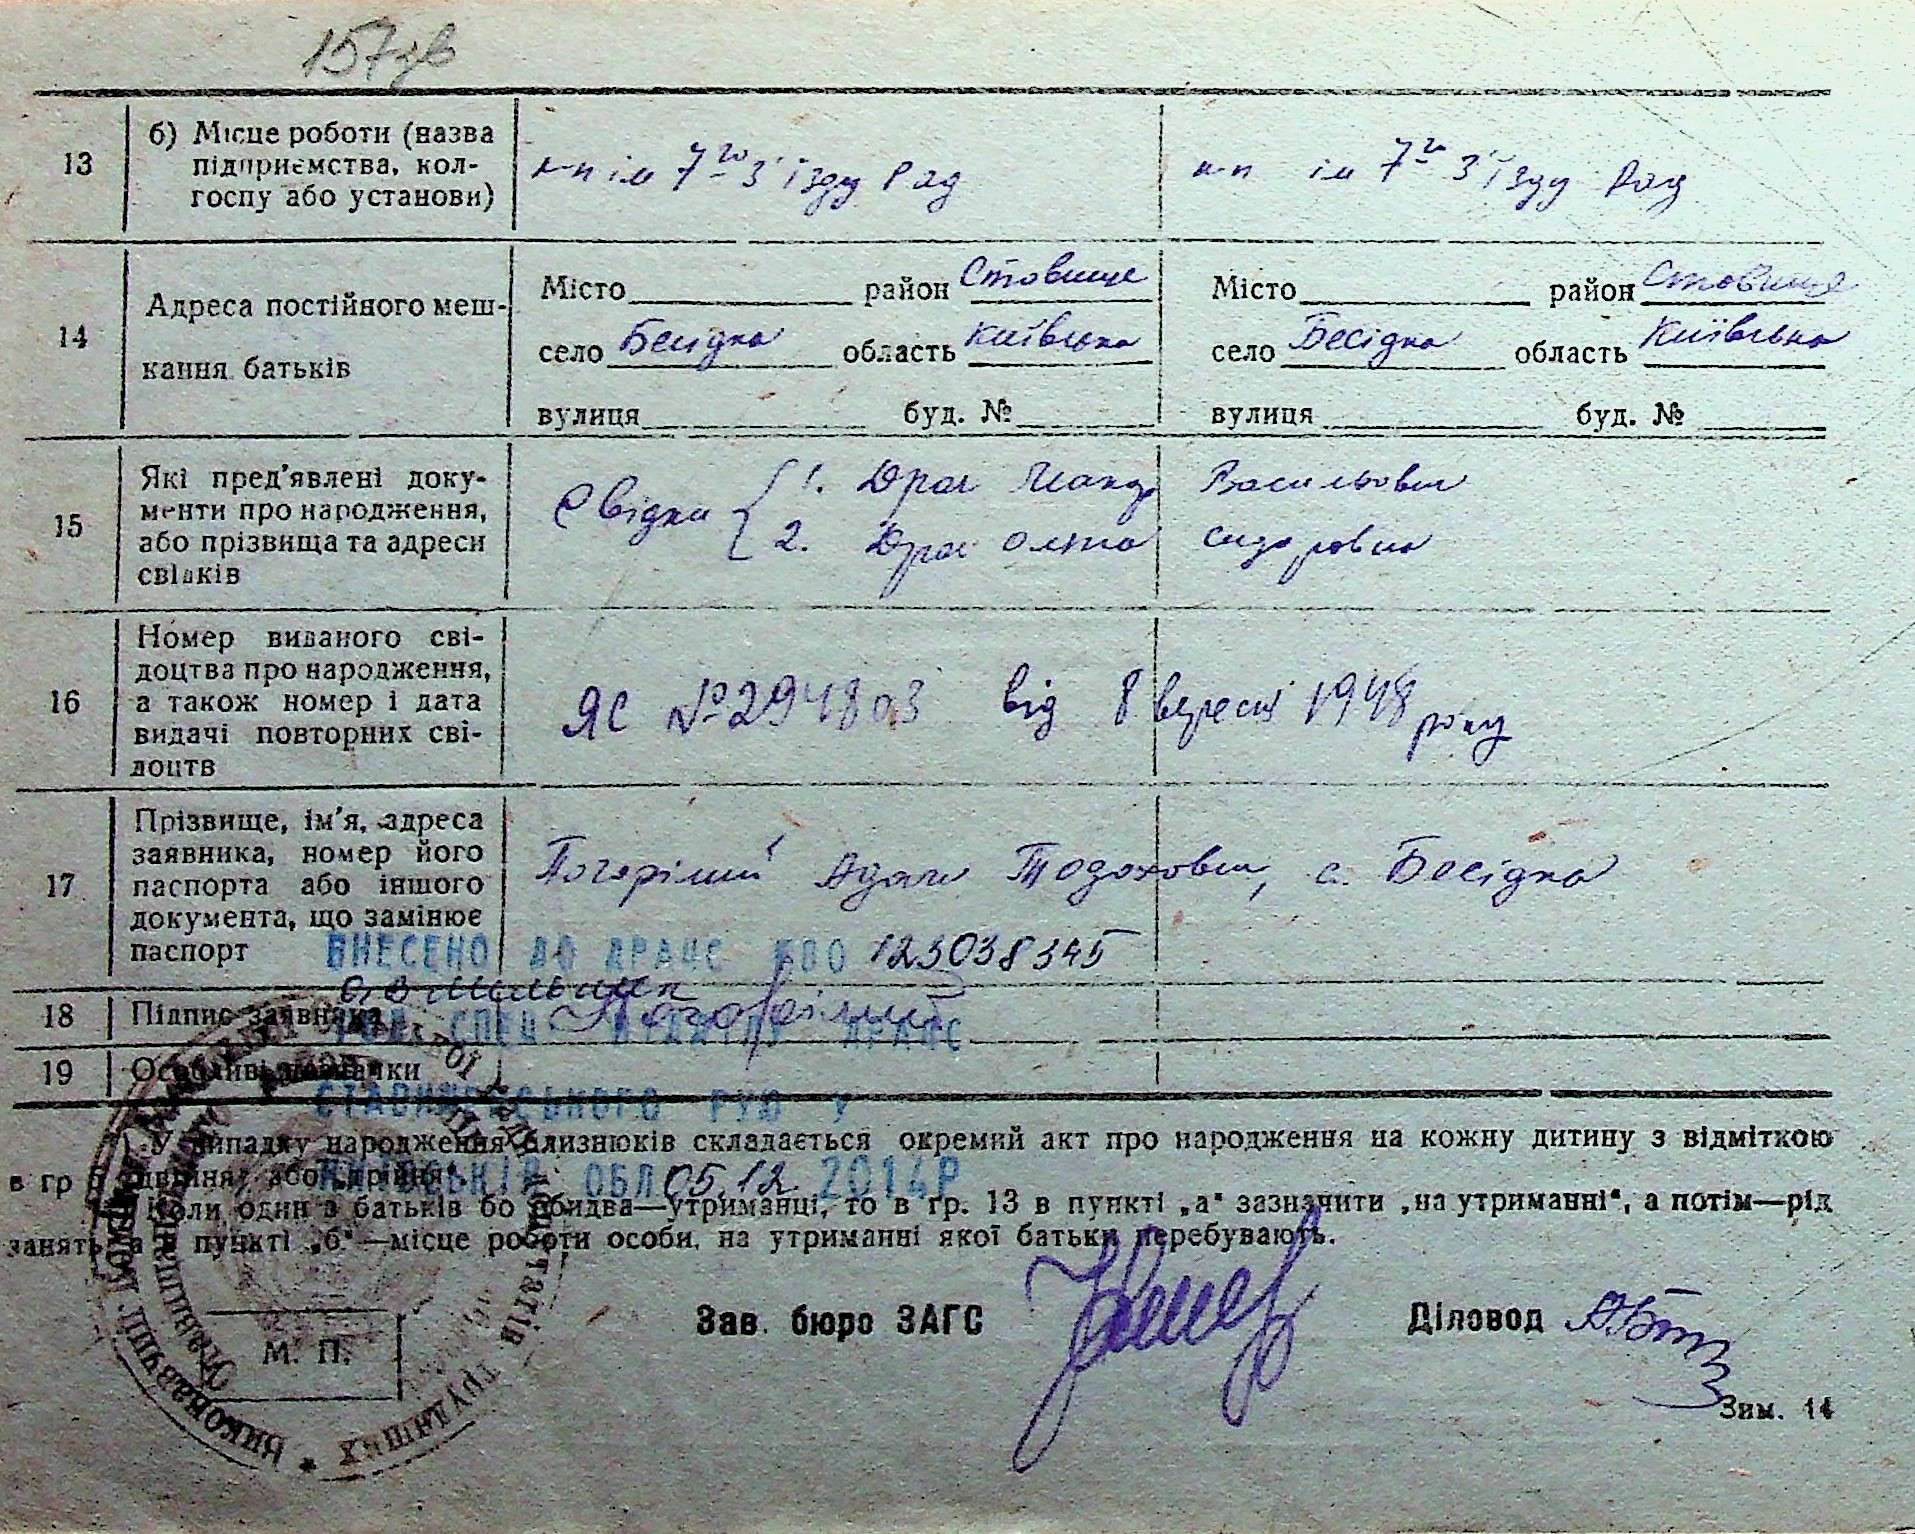 157зв
13
б) Місце роботи (назва
підприємства, кол-
госпу або установи)
к-п ім 7го З'їзду Рад
к-п ім 7го З'їзду Рад
14
Адреса постійного меш-
кання батьків
Місто район Ставище
село Бесідка область Київська
вулиця буд. №
Місто район Ставище
село Бесідка область Київська
вулиця буд. №
15
Які пред'явлені доку-
менти про народження,
або прізвища та адреси
свідків
Свідки 1. Драч Васильович
2. Драч Ольга Сидоровна
16
Номер виданого сві-
доцтва про народження,
а також номер і дата
видачі повторних сві-
доцтв
ЯС №294803 від 8 вересня 1948 року
17
Прізвище, ім'я, адреса
заявника, номер його
паспорта або іншого
документа, що замінює
паспорт
Погорілий Адам Тодохович, с. Бесідка
ВНЕСЕНО ДО ДРАЦС 00123038345
18
Підпис заявника
Погорілий
ГОЛ. СПЕЦ ВІДДІЛУ ДРАЦС
19
Особливі помітки
СТАВИЩЕНСЬКОГО РУЮ У
КИЇВСЬКІЙ ОБЛ 05.12.2014Р
У випадку народження близнюків складається окремий акт про народження на кожну дитину з відміткою
в гр двійня, або трійня".
Коли один з батьків бо обидва—утриманці, то в гр. 13 в пункті „а" зазначити „на утриманні", а потім—рід
занять, а в пункті „б"—місце роботи особи, на утриманні якої батьки перебувають.
Зав. бюро ЗАГС
Діловод
М. П.
Зим. 14